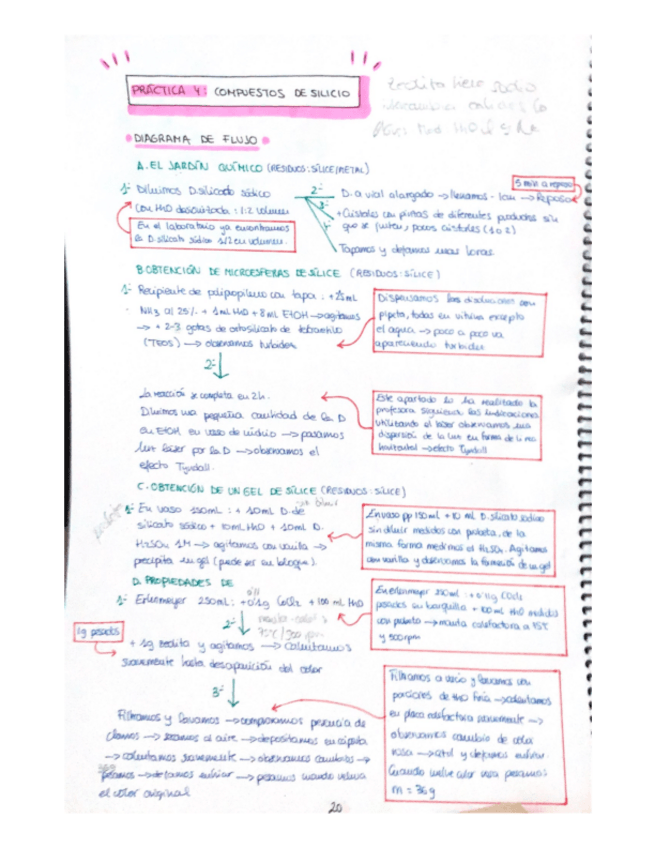 PRÁCTICA 4: COMPUESTOS DE SILICIO
DIAGRAMA DE FLUJO
A. EL JARDÍN QUÍMICO (RESIDUOS: SÍLICE/METAL)
5 min a reposo
1- Diluimos D. silicato sódico
con H2O desionizada: 1:2 volumen
2-
D. a vial alargado → llenamos → Reposo
3-
+ Cristales con pinzas de diferentes productos sin
que se junten, pocos cristales (1 o 2)
Tapamos y dejamos unas horas
En el laboratorio ya encontramos
la D. silicato sódico 1/2 en volumen.
B. OBTENCIÓN DE MICROESFERAS DE SÍLICE (RESIDUOS: SÍLICE)
1- Recipiente de polipropileno con tapa: + mL
NH3 al 25% + 1mL H2O + 8mL EtOH → agitamos
→ + 2-3 gotas de ortosilicato de tetraetilo
(TEOS) → observamos turbidez
Dispensamos las disoluciones con
pipeta, todas en vitrina excepto
el agua → poco a poco va
apareciendo turbidez
2-
La reacción se completa en 2h.
Diluimos una pequeña cantidad de la D
en EtOH en vaso de vidrio → pasamos
luz láser por la D → observamos el
efecto Tyndall.
Este apartado lo ha realizado la
profesora siguiendo las indicaciones
utilizando el láser observamos una
dispersión de la luz en forma de línea
horizontal → efecto Tyndall
C. OBTENCIÓN DE UN GEL DE SÍLICE (RESIDUOS: SÍLICE)
sin diluir
1- En vaso 150mL: + 10mL D. de
silicato sódico + 10mL H2O + 10mL D.
H2SO4 1M → agitamos con varilla →
precipita un gel (puede ser un bloque).
En vaso pp 150ml + 10 mL D. silicato sódico
sin diluir medidos con probeta, de la
misma forma medimos el H2SO4. Agitamos
con varilla y observamos la formación de un gel
D. PROPIEDADES DE
1- Erlenmeyer 250mL: + 0'1g CoCl2 + 100 mL H2O
0'11
2-
75ºC/500 rpm
1g pesados
+ 1g zeolita y agitamos → calentamos
suavemente hasta desaparición del color
En erlenmeyer 250ml: + 0'11g CoCl2
pesados en barquilla + 100ml H2O medidos
con probeta → manta calefactora a 75ºC
y 500rpm
3-
Filtramos y lavamos → comprobamos presencia de
cloruros → secamos al aire → depositamos en cápsula
→ calentamos suavemente → observamos cambios →
pesamos → dejamos enfriar → pesamos cuando vuelva
el color original
Filtramos a vacío y lavamos con
porciones de H2O fría → calentamos
en placa calefactora suavemente →
observamos cambio de color
rosa → azul y dejamos enfriar.
Cuando vuelve color rosa pesamos:
m = 36 g
20